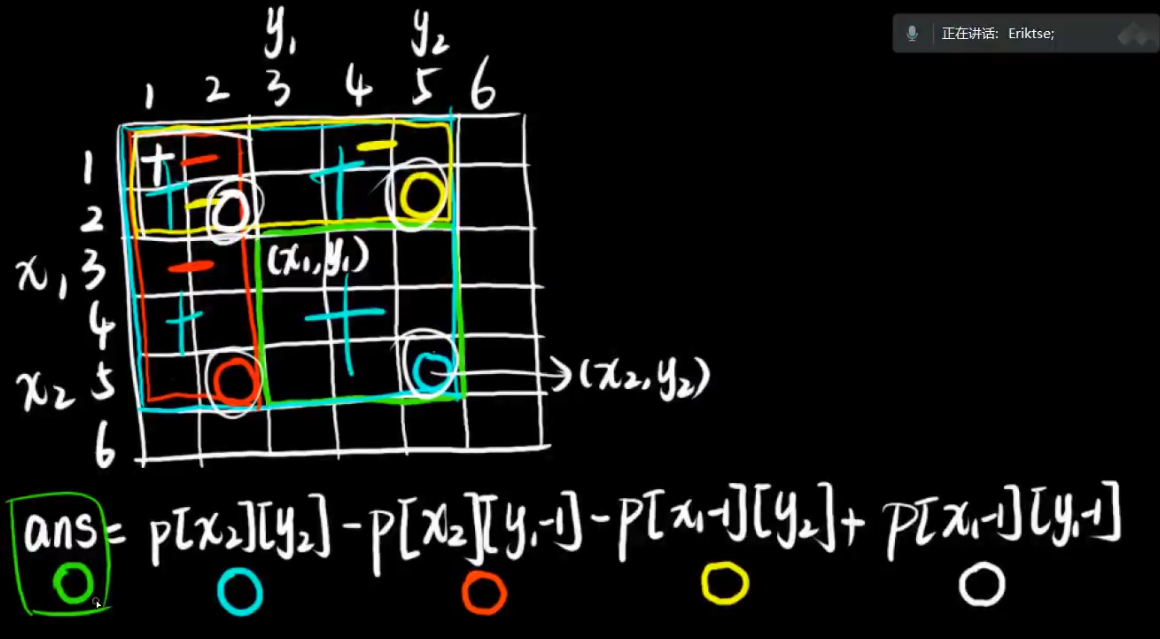 正在讲话: Eriktse;
y₁ y₂
1 2 3 4 5 6
1
2
x₁ 3
(x₁,y₁)
4
x₂ 5
(x₂,y₂)
6
ans = p[x₂][y₂] - p[x₂][y₁-1] - p[x₁-1][y₂] + p[x₁-1][y₁-1]